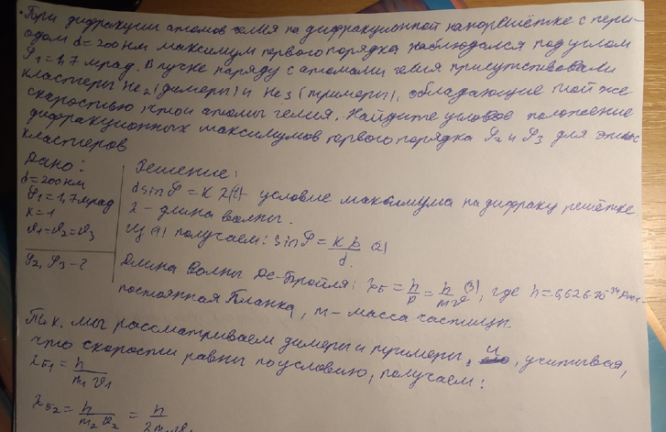 При дифракции атомов гелия на дифракционной нанорешётке с пери-
одом d=200нм максимум первого порядка наблюдался под углом
φ₁=1,7 мрад. В пучке наряду с атомами гелия присутствовали
кластеры He₂ (димеры) и He₃ (тримеры), обладающие той же
скоростью что и атомы гелия. Найдите угловое положение
дифракционных максимумов первого порядка φ₂ и φ₃ для этих
кластеров
Дано:
d=200нм
φ₁=1,7мрад
k=1
υ₁=υ₂=υ₃
φ₂, φ₃-?
Решение:
d sinφ = k λ (1) - условие максимума на дифракц решётке
λ - длина волны.
Из (1) получаем: sinφ = kλ/d (2)
Длина волны Де-Бройля: λБ = h/p = h/mυ (3), где h=6,626·10⁻³⁴
постоянная Планка, m - масса частицы.
Т.к. мы рассматриваем димеры и тримеры, и, учитывая,
что скорости равны по условию, получаем:
λБ1 = h/m₁υ₁
λБ2 = h/m₂υ₂ =